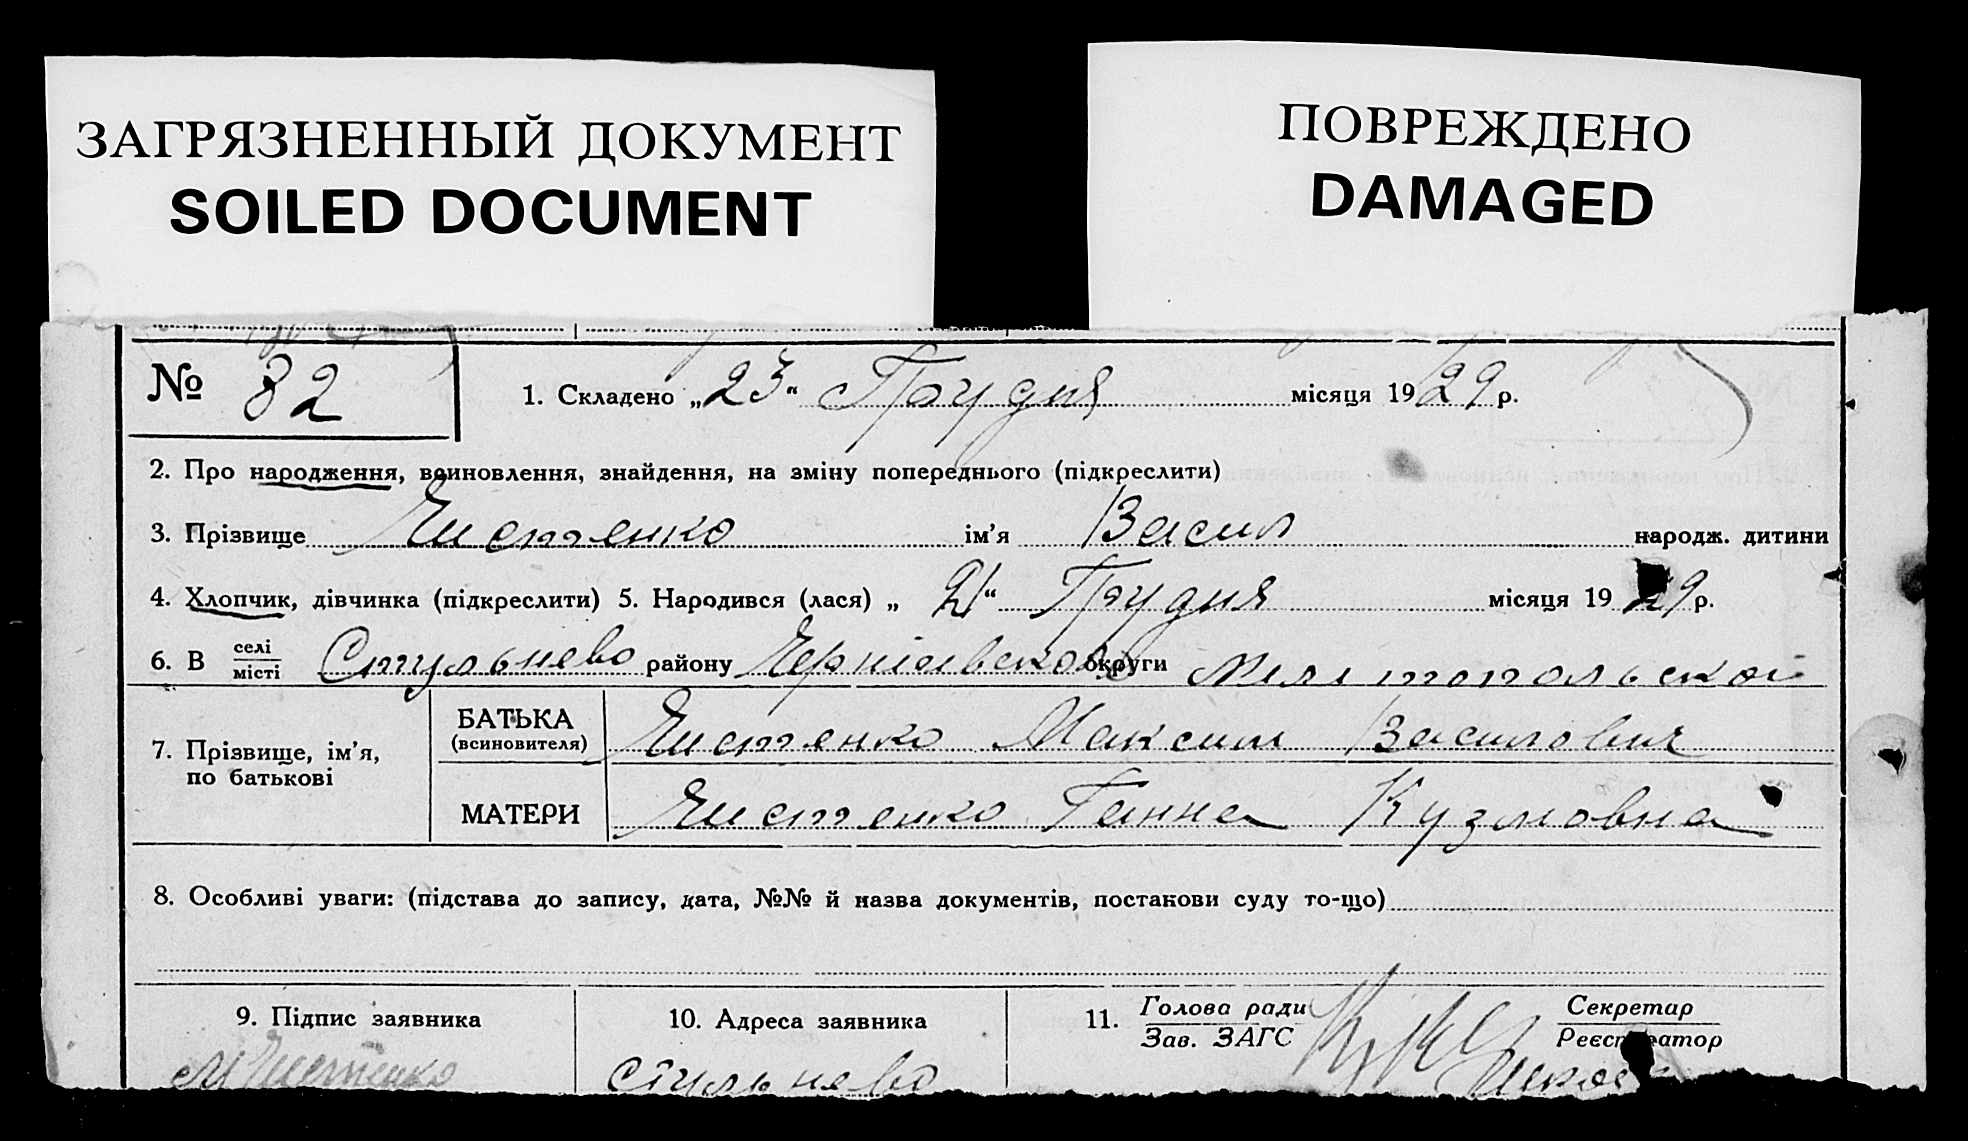 ЗАГРЯЗНЕННЫЙ ДОКУМЕНТ
SOILED DOCUMENT
ПОВРЕЖДЕНО
DAMAGED
№ 82
1. Складено „23“ Грудня місяця 1929 р.
2. Про народження, всиновлення, знайдення, на зміну попереднього (підкреслити)
3. Прізвище Чистенко ім’я Васил народж. дитини
4. Хлопчик, дівчинка (підкреслити) 5. Народився (лася) „21“ Грудня місяця 1929 р.
6. В селі місті Стульнево району Черніівской округи Мелітопольской
7. Прізвище, ім’я, по батькові
БАТЬКА (всиновителя) Чистенко Максим Василович
МАТЕРИ Чистенко Ганна Кузмовна
8. Особливі уваги: (підстава до запису, дата, №№ й назва документів, постанови суду то-що)
9. Підпис заявника 10. Адреса заявника 11. Голова ради Зав. ЗАГС Секретар Реєстратор
М Чистенко Стульнево